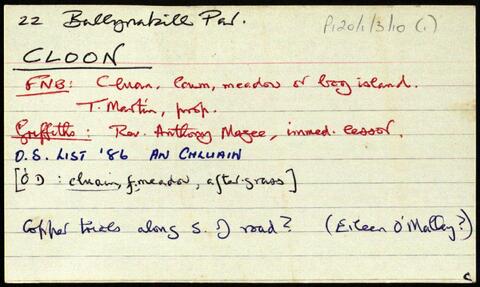 22 Ballynakill Par. P120/1/3/10 (1)
CLOON
FNB: Cluain, lawn, meadow or bog island.
T. Martin, prop.
Griffiths: Rev. Anthony Magee, immed. lessor.
O.S. LIST '86 AN CHLUAIN
[Ó D : cluain, f. meadow, after-grass]
Copper trials along S. of road? (Eileen O'Malley?)
C